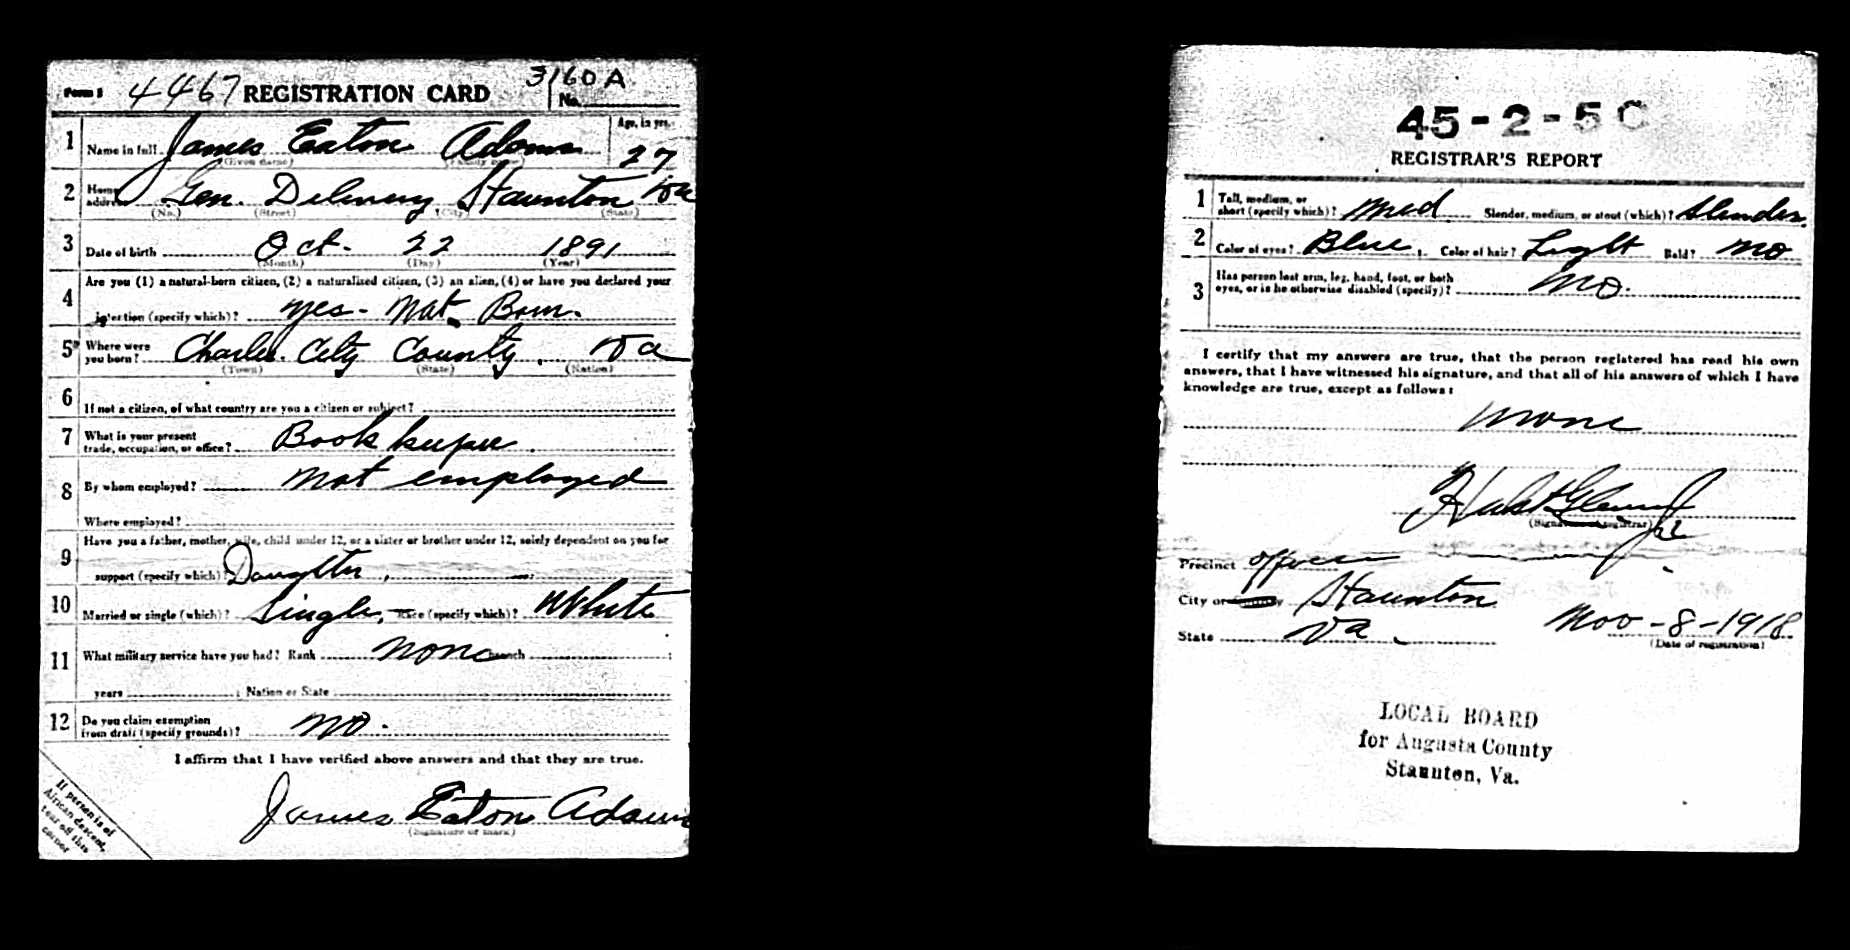 Form 1 4467 REGISTRATION CARD 3160 A No.
1 Name in full James Eaton Adams Age, in yrs. 27
(Given name) (Family name)
2 Home address Gen. Delivery Staunton Va
(No.) (Street) (City) (State)
3 Date of birth Oct. 22 1891
(Month) (Day) (Year)
4 Are you (1) a natural-born citizen, (2) a naturalized citizen, (3) an alien, (4) or have you declared your
intention (specify which)? Yes - Nat. Born.
5 Where were you born? Charles City County. Va
(Town) (State) (Nation)
6 If not a citizen, of what country are you a citizen or subject?
7 What is your present trade, occupation, or office? Book keeper
8 By whom employed? Not employed
Where employed?
9 Have you a father, mother, wife, child under 12, or a sister or brother under 12, solely dependent on you for
support (specify which)? Daughter
10 Married or single (which)? Single Race (specify which)? White
11 What military service have you had? Rank None branch
years ; Nation or State
12 Do you claim exemption from draft (specify grounds)? No.
I affirm that I have verified above answers and that they are true.
James Eaton Adams
(Signature or mark)
If person is of
African descent,
tear off this
corner
45-2-5 C
REGISTRAR'S REPORT
1 Tall, medium, or short (specify which)? Med Slender, medium, or stout (which)? Slender
2 Color of eyes? Blue Color of hair? Light Bald? No
3 Has person lost arm, leg, hand, foot, or both
eyes, or is he otherwise disabled (specify)? No.
I certify that my answers are true, that the person registered has read his own
answers, that I have witnessed his signature, and that all of his answers of which I have
knowledge are true, except as follows:
None
(Signature of registrar)
Precinct office
City or County Staunton
State Va. Nov - 8 - 1918
(Date of registration)
LOCAL BOARD
for Augusta County
Staunton, Va.